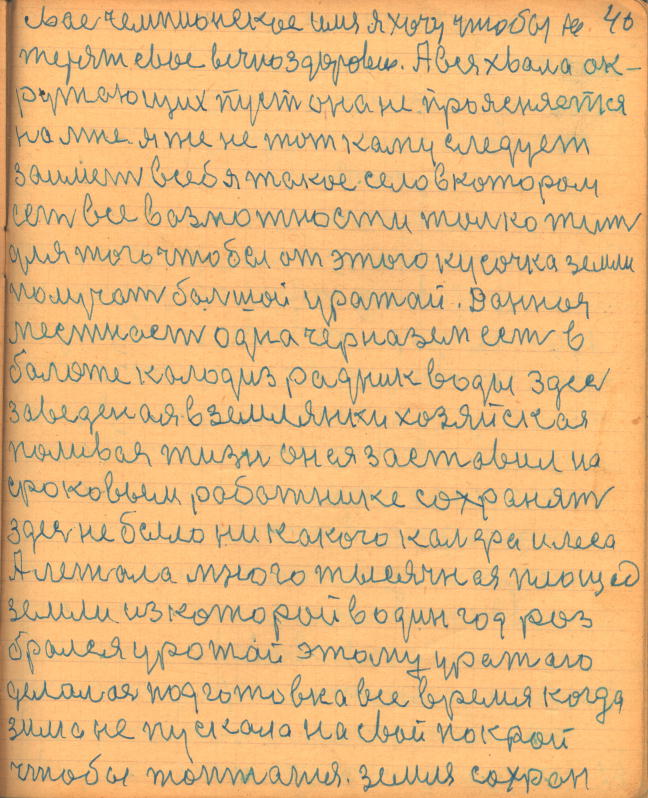 свое чемпионское имя я хочу чтобы не 40
терят свое вечноздоровие. А вся хвала ок-
ружающих пуст она не проясняется
на мне. я же не тот каму следует
заимет в себя такое село в котором
сет все возможности толко жит
для того чтобы от этого кусочка земли
получат балшой уражай. Данноя
местност одна чернозем сет в
балоте калодиз радник воды здес
заведеная в землянки хозяйская
поливая жизн он ея заставил на
сроковым работнике сохранят
здес не было ни какого каидра и леса
А лежала много тысячная площад
земли из которой в один год роз
брался урожай этому уражаю
делалая подготовка все время когда
зима не пускала на свой покрой
чтобы топтатия. земля сохрон